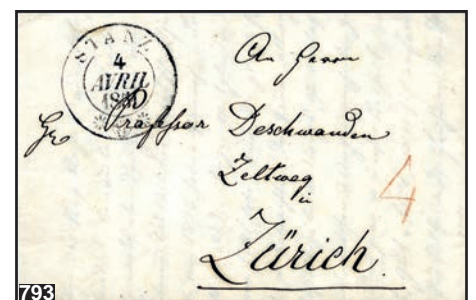 STANZ
4
AVRIL
An Herrn
Professor Deschwanden
Zeltweg
in
Zürich.
4
793